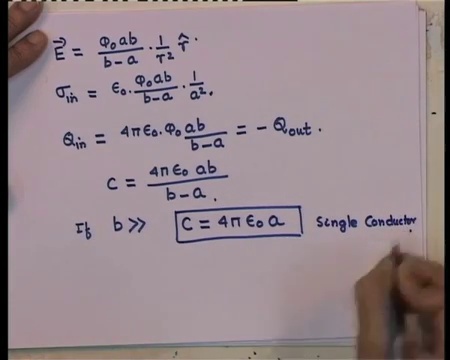 E⃗ = φ₀ab/(b-a) · 1/r² r̂.
σin = ε₀. φ₀ab/(b-a) · 1/a².
Qin = 4πε₀. φ₀ ab/(b-a) = - Qout.
C = 4πε₀ ab/(b-a).
If b>> C = 4πε₀a Single Conductor.